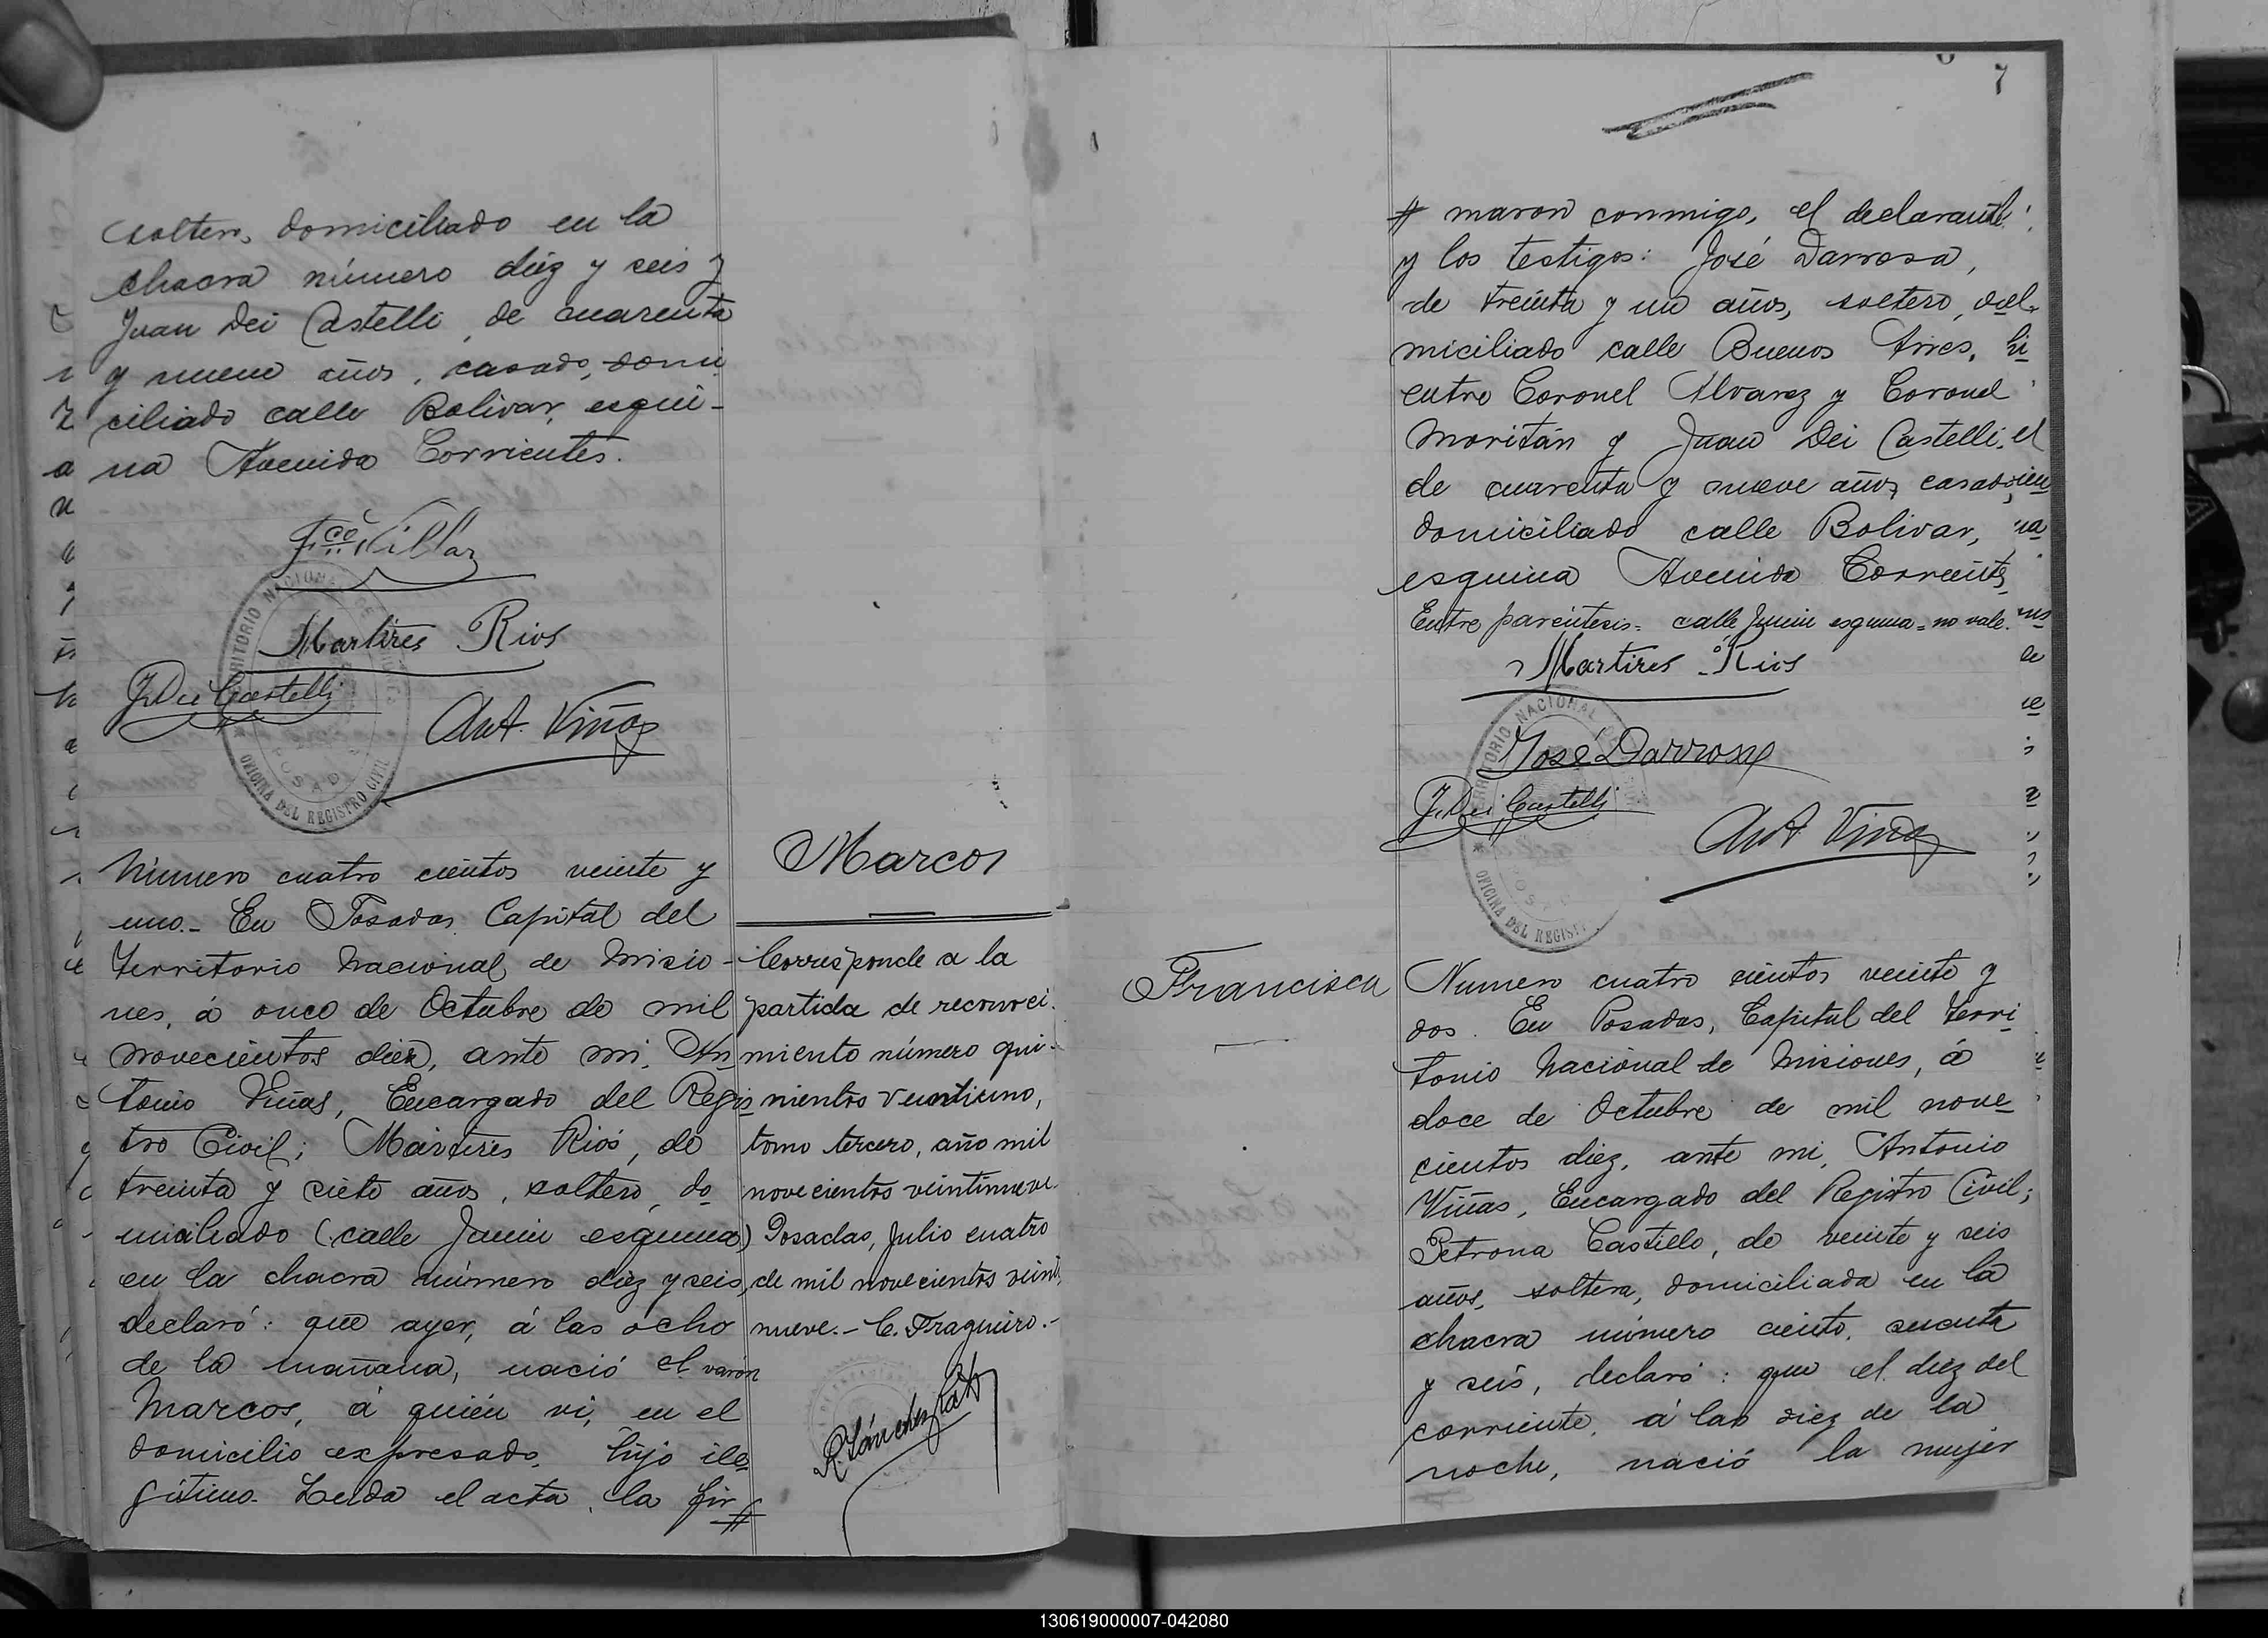 soltero, domiciliado en la
chacra número diez y seis y
Juan Dei Castelli, de cuarenta
y nueve años, casado, domi
ciliado calle Bolivar, esqui-
na Avenida Corrientes.
Fco Villar
Martires Rios
J. Dei Castelli
Ant. Viñas
TERRITORIO NACIONAL DE MISIONES
POSADAS
OFICINA DEL REGISTRO CIVIL
Marcos
Número cuatro cientos veinte y
uno.- En Posadas Capital del
Territorio Nacional de Misio-
nes, á once de Octubre de mil
novecientos diez, ante mi, An
tonio Viñas, Encargado del Regis
tro Civil; Mártires Rios, de
treinta y siete años, soltero, do
miciliado (calle Junin esquina)
en la chacra número diez y seis,
declaró: que ayer, á las ocho
de la mañana, nació el varón
Marcos, á quién vi, en el
domicilio expresado, hijo ile
gítimo. Leida el acta, la fir #
Corresponde a la
partida de reconoci-
miento número qui-
nientos veintiuno,
tomo tercero, año mil
novecientos veintinueve.
Posadas, Julio cuatro
de mil novecientos veinti
nueve.- C. Fragueiro.-
R. Sánchez
7
# maron conmigo, el declarante
y los testigos: José Darrosa,
de treinta y un años, soltero, do
miciliado calle Buenos Aires,
entre Coronel Alvarez y Coronel
Moritán y Juan Dei Castelli,
de cuarenta y nueve años, casado,
domiciliado calle Bolivar,
esquina Avenida Corrientes
Entre paréntesis = calle Junin esquina = no vale.
Martires Rios
José Darrosa
J. Dei Castelli
Ant Viñas
TERRITORIO NACIONAL
OFICINA DEL REGIS
Francisca
Numero cuatro cientos veinte y
dos. En Posadas, Capital del Terri
torio Nacional de Misiones, á
doce de Octubre de mil nove
cientos diez, ante mi, Antonio
Viñas, Encargado del Registro Civil;
Petrona Castillo, de veinte y seis
años, soltera, domiciliada en la
chacra número ciento, sesenta
y seis, declaró: que el diez del
corriente, á las diez de la
noche, nació la mujer
130619000007-042080